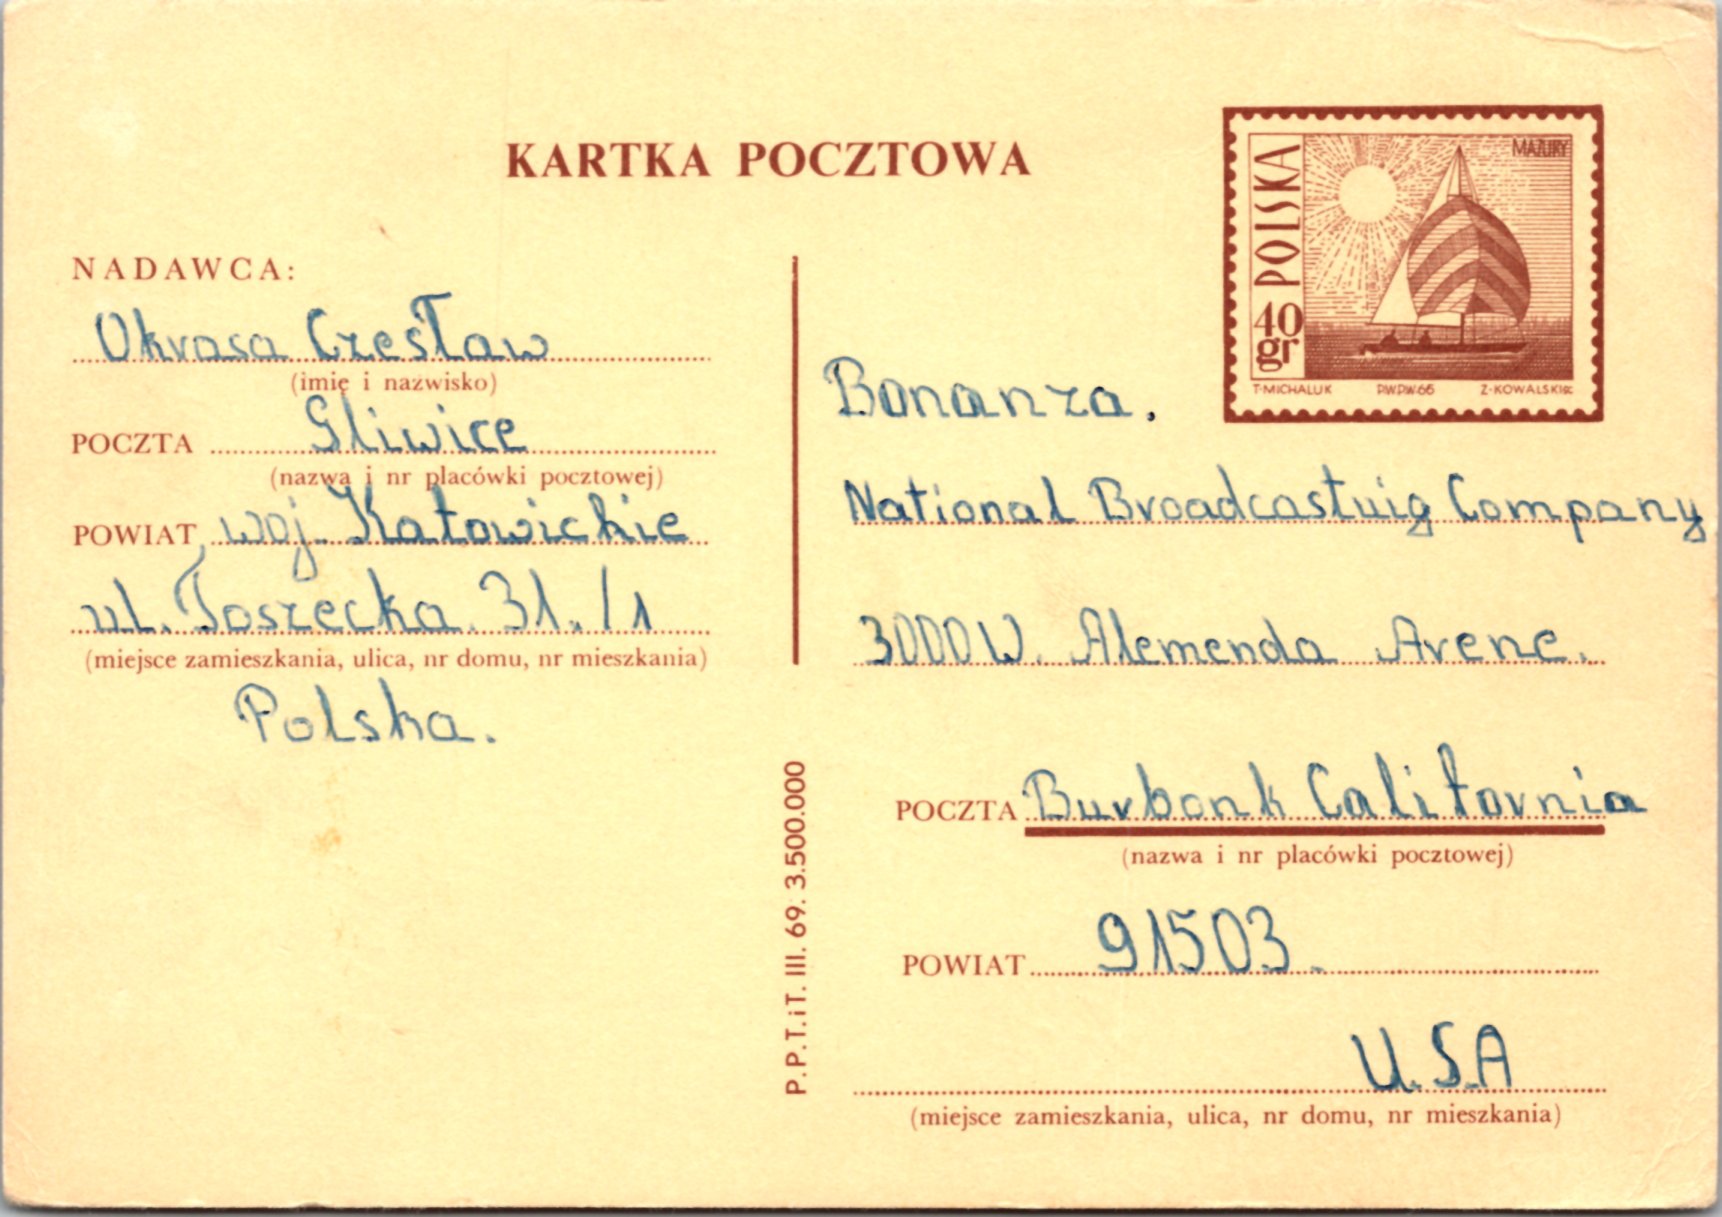 KARTKA POCZTOWA
POLSKA
MAZURY
40 gr
T·MICHALUK P.W.P.W.66 Z·KOWALSKI sc
NADAWCA:
Okrasa Czesław
(imię i nazwisko)
POCZTA Gliwice
(nazwa i nr placówki pocztowej)
POWIAT, woj. Katowickie
ul. Toszecka 31./1
(miejsce zamieszkania, ulica, nr domu, nr mieszkania)
Polska.
P.P.T.iT. III. 69. 3.500.000
Bonanza.
National Broadcastuig Company
3000 W. Alemenda Avene.
POCZTA Burbank Calitovnia
(nazwa i nr placówki pocztowej)
POWIAT 91503.
U.S.A
(miejsce zamieszkania, ulica, nr domu, nr mieszkania)